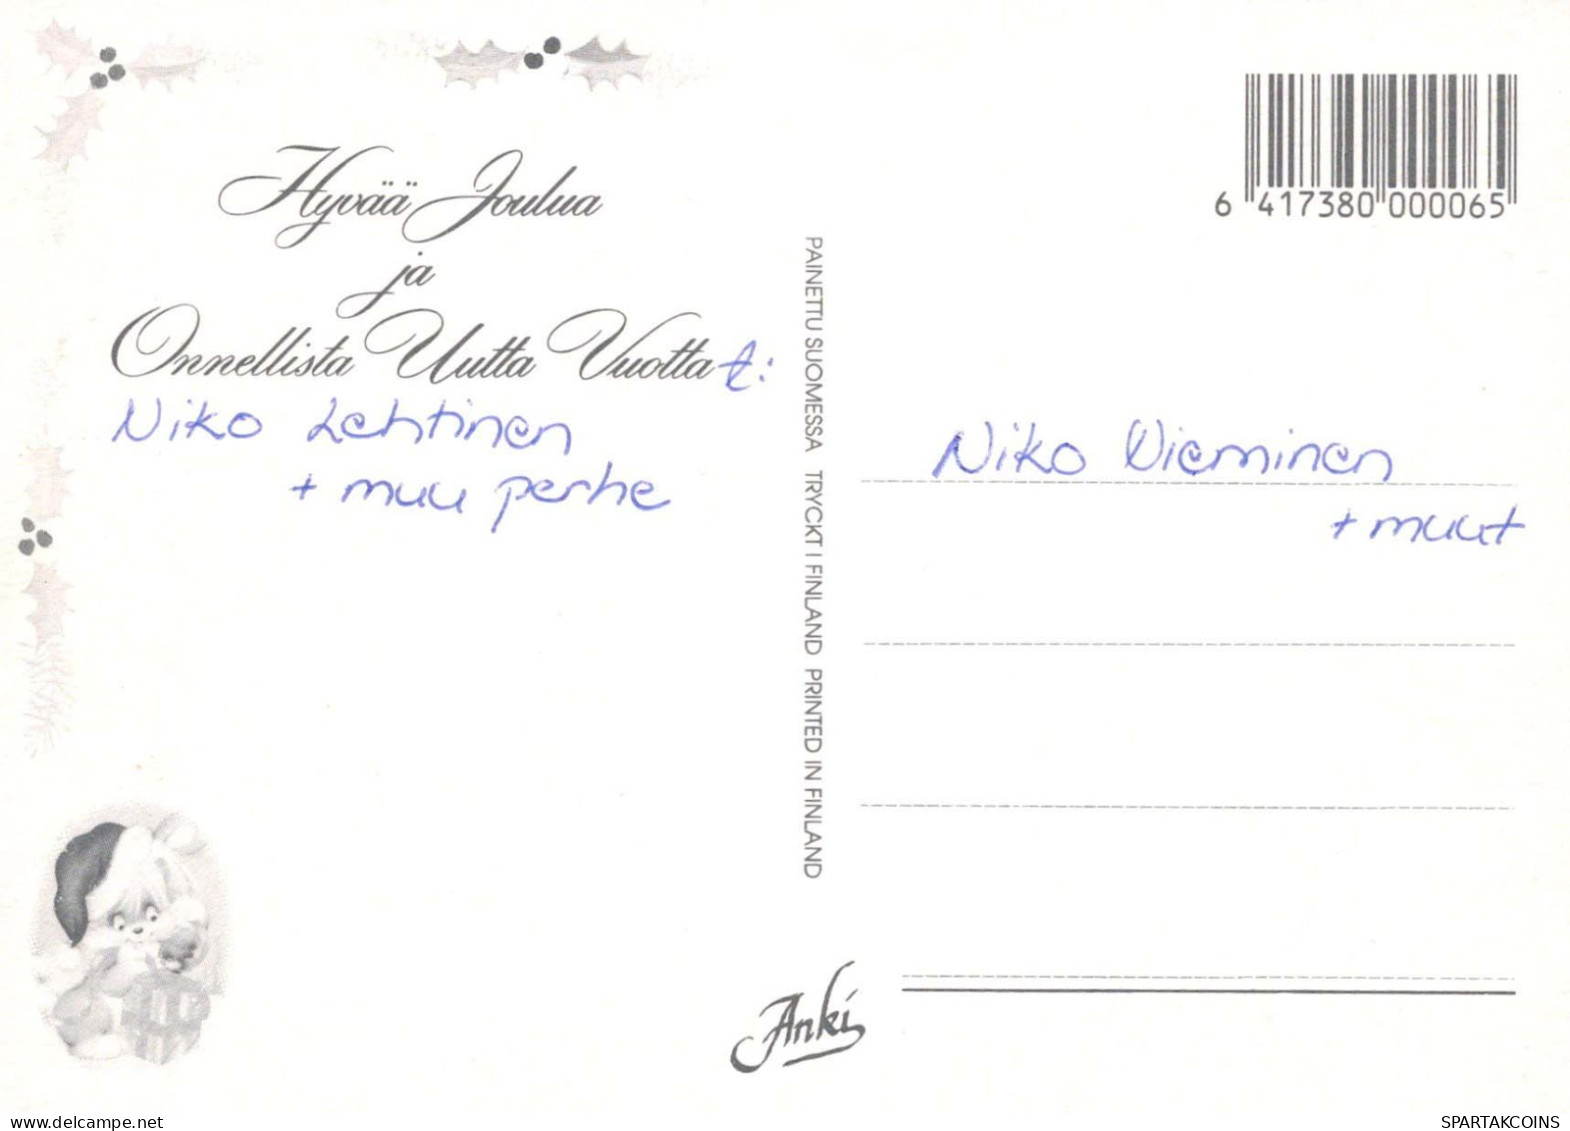 Hyvää Joulua
ja
Onnellista Uutta Vuotta t:
Niko Lehtinen
+ muu perhe
PAINETTU SUOMESSA TRYCKT I FINLAND PRINTED IN FINLAND
6 417380 000065
Niko Nieminen
+ muut
Anki
delcampe.net
SPARTAKCOINS